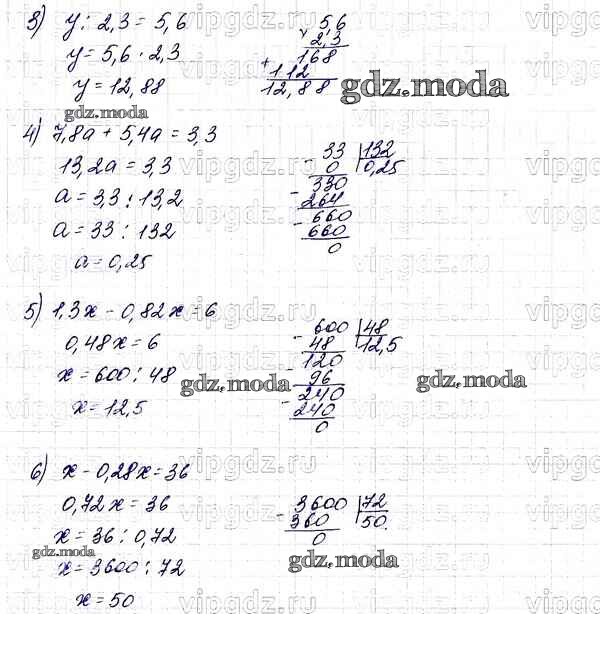 3) y : 2,3 = 5,6
y = 5,6 · 2,3
y = 12,88
5,6
× 2,3
168
+ 112
12,88
gdz.moda
gdz.moda
4) 7,8a + 5,4a = 3,3
13,2a = 3,3
a = 3,3 : 13,2
a = 33 : 132
a = 0,25
33 |132
- 0 0,25
330
- 264
660
- 660
0
5) 1,3x - 0,82x = 6
0,48x = 6
x = 600 : 48
x = 12,5
gdz.moda
600 |48
- 48 12,5
120
- 96
240
- 240
0
gdz.moda
6) x - 0,28x = 36
0,72x = 36
x = 36 : 0,72
gdz.moda
x = 3600 : 72
x = 50
3600 |72
- 360 50.
0
gdz.moda
vipgdz.ru